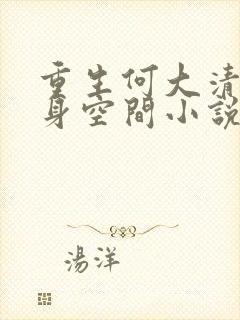 重生何大清
身空間小說
湯洋